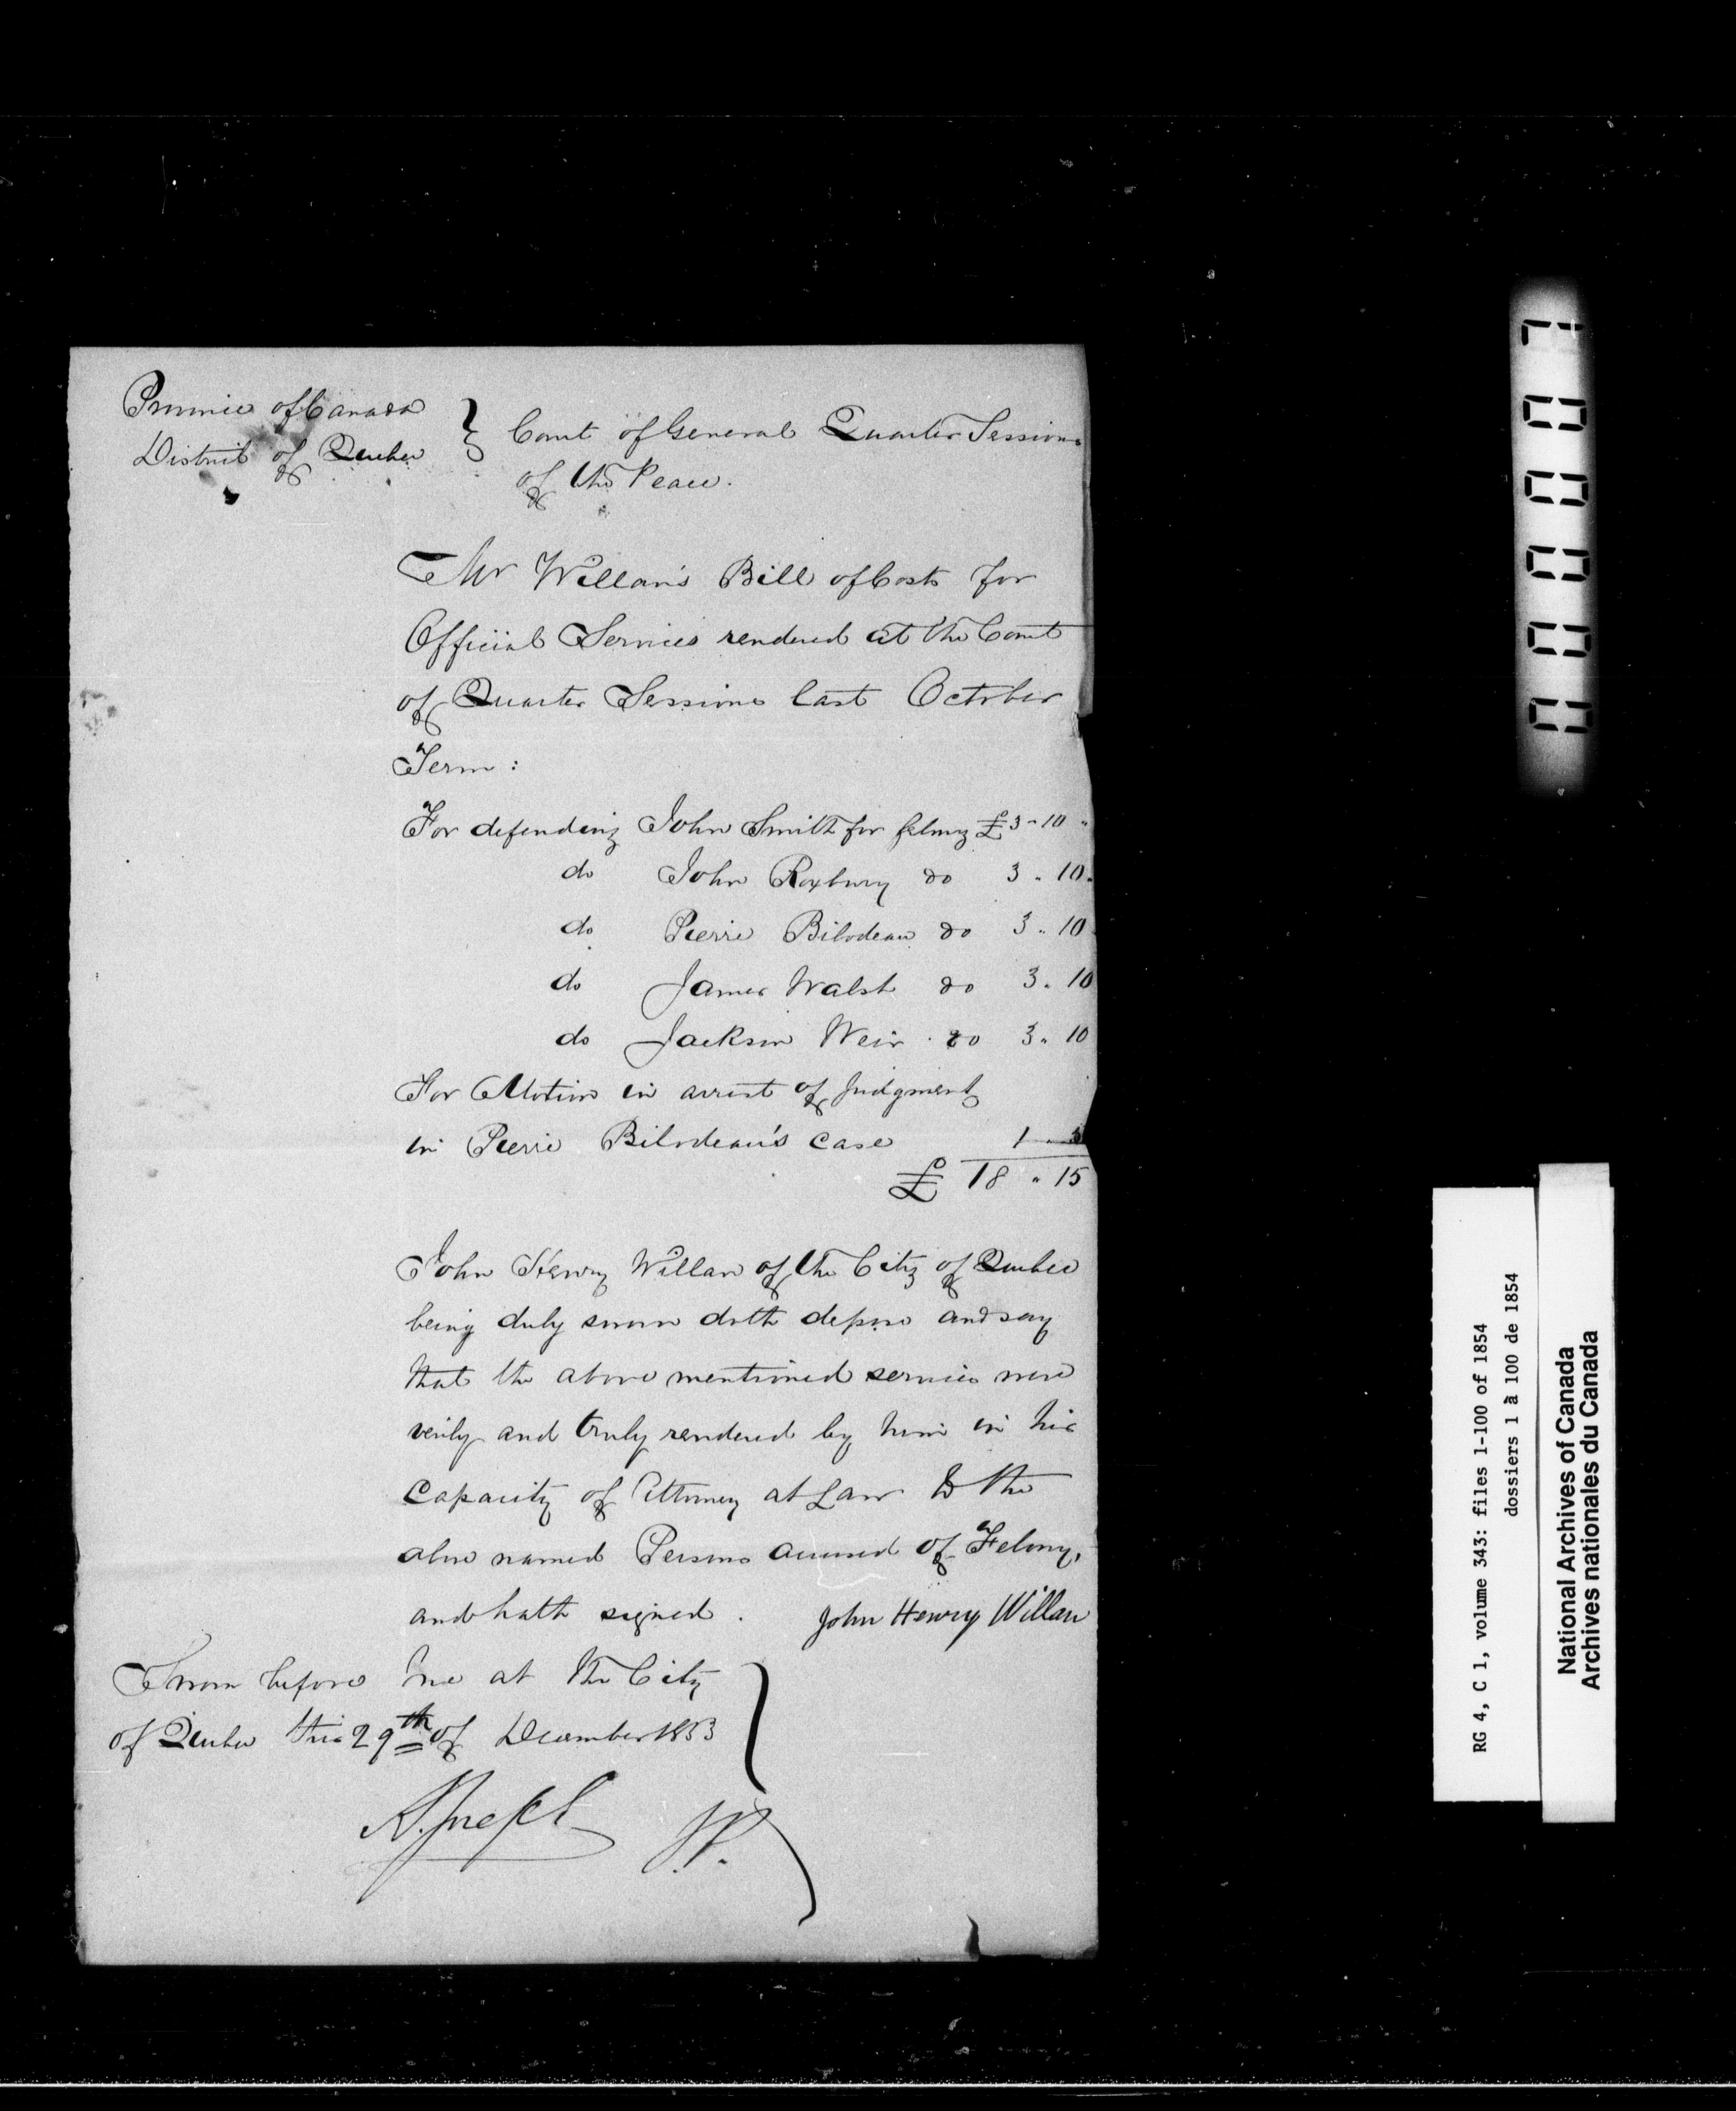 Province of Canada
District of Quebec
Court of General Quarter Sessions
of the Peace.
Mr Willan's Bill of Costs for
Official Services rendered at the Court
of Quarter Sessions last October
Term :
For defending John Smith for felony £3 " 10 "
do John Roxbury do 3 " 10 "
do Pierre Bilodeau do 3 " 10
do James Walsh do 3 " 10
do Jackson Weir do 3 " 10
For Motion in arrest of Judgment
in Pierre Bilodeau's case 1 " 5
£ 18 " 15
John Henry Willan of the City of Quebec
being duly sworn doth depose and say
that the above mentioned services were
verily and truly rendered by him in his
capacity of Attorney at Law to the
above named Persons accused of Felony,
and hath signed . John Henry Willan
Sworn before me at the City
of Quebec this 29th of December 1853
J.P.
0000007
RG 4, C 1, volume 343: files 1-100 of 1854
dossiers 1 à 100 de 1854
National Archives of Canada
Archives nationales du Canada